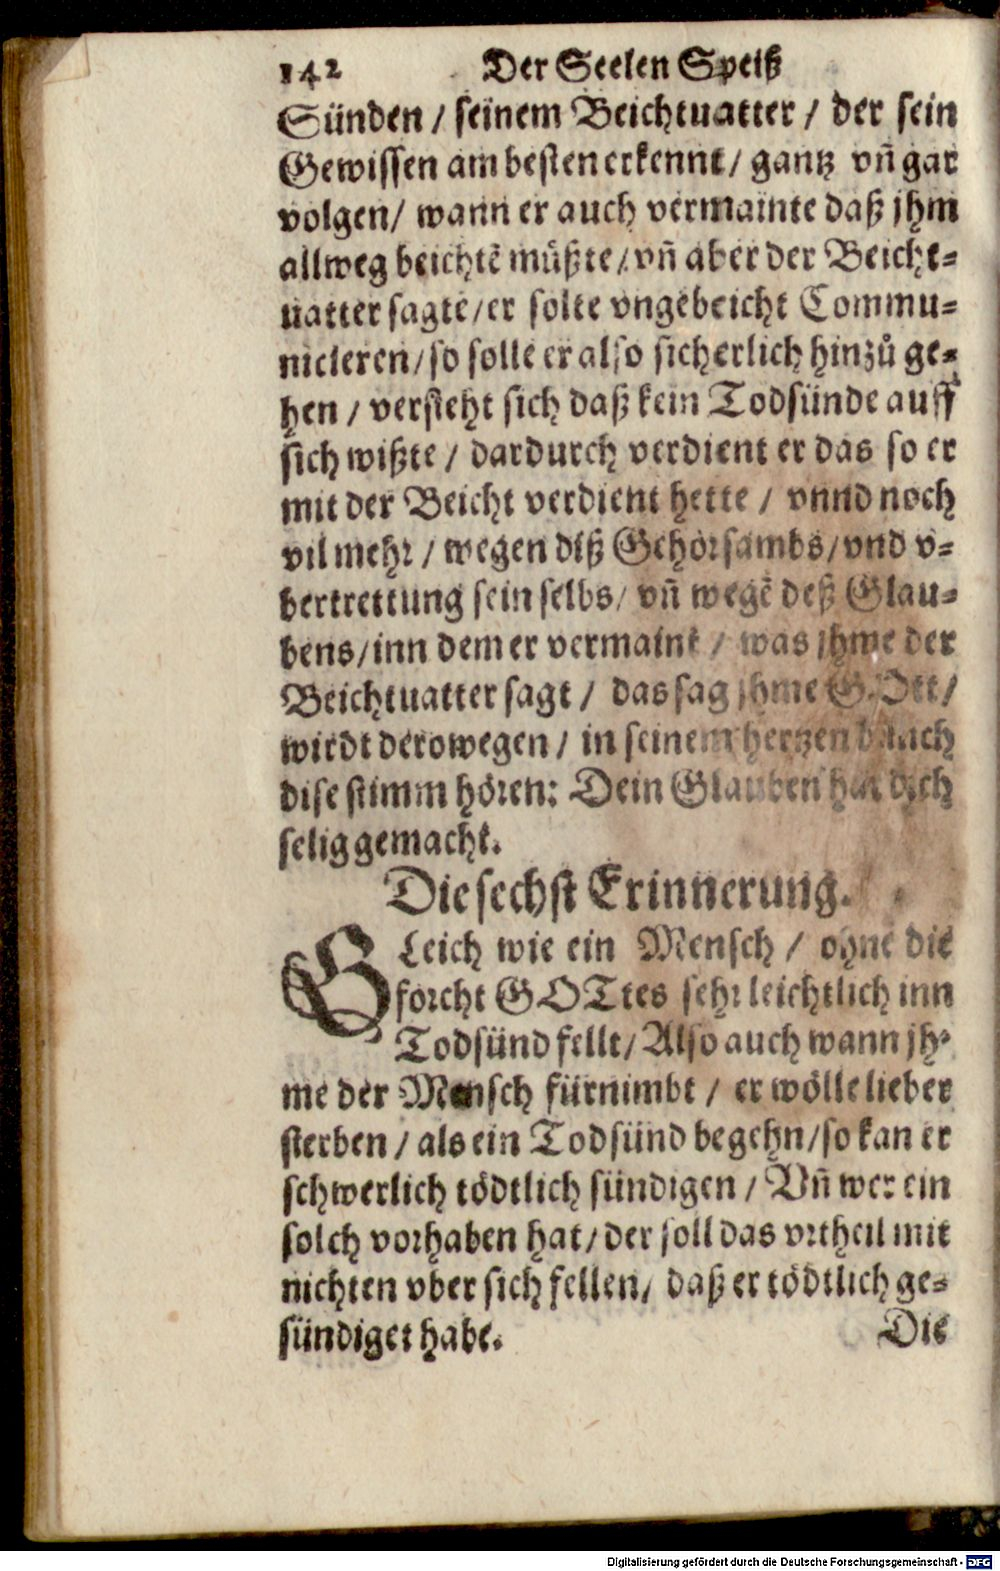 142 Der Seelen Speiß
Sünden / seinem Beichtuatter / der sein
Gewissen am besten erkennt / gantz vñ gar
volgen / wann er auch vermainte daß jhm
allweg beichtẽ müßte / vñ aber der Beicht-
uatter sagte / er solte vngebeicht Commu-
nicieren / so solle er also sicherlich hinzů ge-
hen / versteht sich daß kein Todsünde auff
sich wißte / dardurch verdient er das so er
mit der Beicht verdient hette / vnnd noch
vil mehr / wegen diß Gehorsambs / vnd v-
bertrettung sein selbs / vñ wegẽ deß Glau-
bens / inn dem er vermaint / was jhme der
Beichtuatter sagt / das sag jhme GOtt /
wirdt derowegen / in seinem hertzen
dise stimm hören: Dein Glauben hat dich
selig gemacht.
Die sechst Erinnerung.
GLeich wie ein Mensch / ohne die
forcht GOTtes sehr leichtlich inn
Todsünd fellt / Also auch wann jh-
me der Mensch fürnimbt / er wölle lieber
sterben / als ein Todsünd begehn / so kan er
schwerlich tödtlich sündigen / Vñ wer ein
solch vorhaben hat / der soll das vrtheil mit
nichten vber sich fellen / daß er tödtlich ge-
sündiget habe.
Die
Digitalisierung gefördert durch die Deutsche Forschungsgemeinschaft - DFG